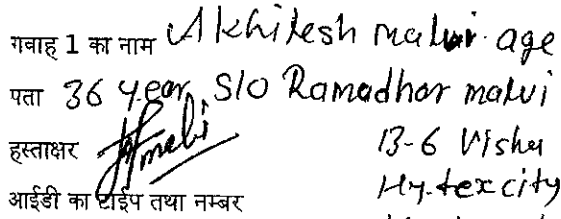 गवाह 1 का नाम Akhilesh malvi age
पता 36 year S/O Ramadhar malvi
हस्ताक्षर 13-6 Visha
आईडी का टाईप तथा नम्बर Hy.tex city